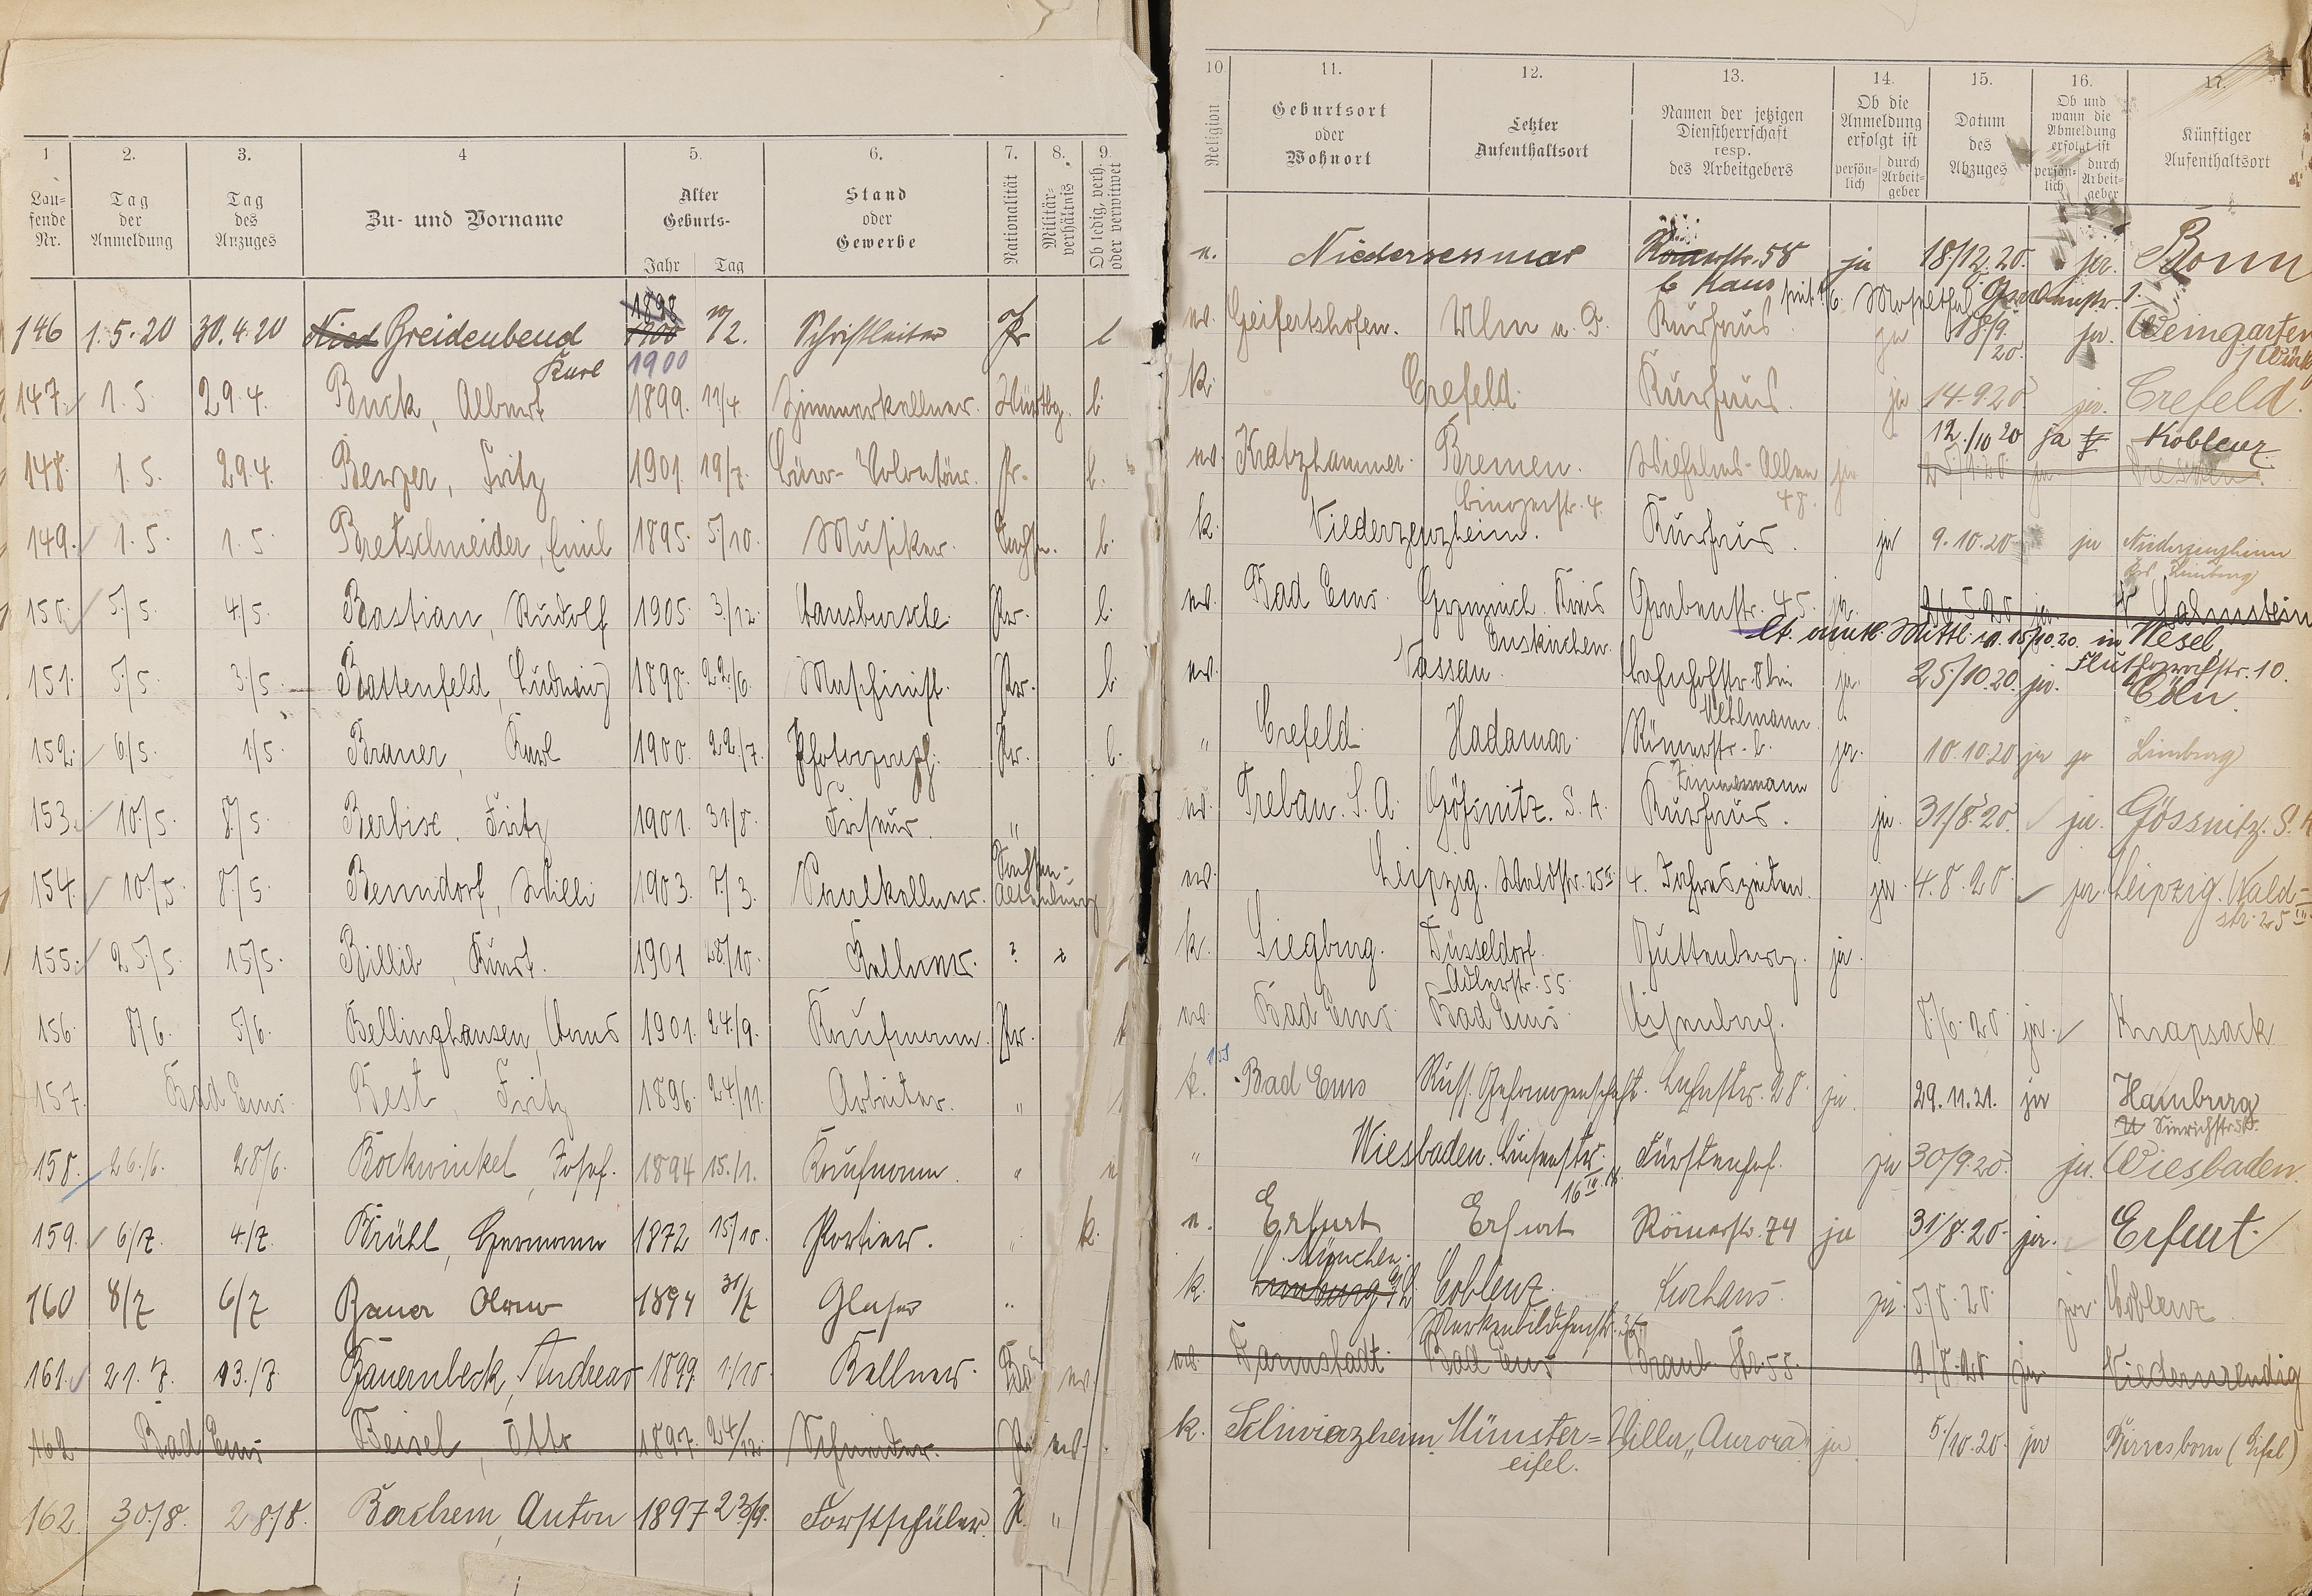 1 2. 3. 4 5. 6. 7. 8. 9.
Lau-fende Nr. Tag der Anmeldung Tag des Anzuges Zu- und Vorname Alter Geburts- Jahr Tag Stand oder Gewerbe Nationalität Militär-verhältnis Ob ledig, verh. oder verwitwet
146 1.5.20 30.4.20 Nied Breidenbend Karl 1898 1900 1900 Schriftleiter Pr l
147. 1.5. 29.4. Buck, Albert 1899. 19/4. Zimmerkellner. Württbg. l.
148. 1.5. 29.4. Benzer, Fritz 1901. 19/7. Büro-Volontär. Pr. l.
149. 1.5. 1.5. Bretschneider, Emil 1895. 5/10. Musiker. Sachsn. l.
150. 5./5. 4/5. Bastian, Rudolf 1905. 3./12. Hausbursche. Pr. l.
151. 5./5. 3./5. Battenfeld, Ludwig 1898. 22./6. Maschinist. Pr. l.
152. 6/5. 1/5. Braner, Karl 1900. 22./7. Photograph. Pr. l.
153. 10./5. 8./5. Berbix, Fritz 1901. 31./8. Friseur. "
154. 10./5 8./5. Benndorf, Willi 1903. 7./3. Saalkellner. Sachsen-Altenburg
155. 25./5. 15/5. Billib, Kurt. 1901 28./10. Kellner. ?
156. 8/6. 5/6. Bellinghausen, Hans 1901. 24./9. Kaufmann. Pr.
157. Bad Ems. Best, Fritz 1896. 24./11. Arbeiter. "
158. 26./6. 28/6. Bockwinkel, Josef. 1894 15./1. Kaufmann. "
159. 6/7. 4./7. Brühl, Hermann 1872 15/10. Portier. " k.
160 8/7 6/7 Bauer 1894 31/7 Glaser "
161. 21.7. 13./7. Bauernbeck, Andreas 1899. 1./10. Kellner.
162 Bad Ems Beisel, Otto 1897. 24/12. Schneider. Pr. ev.
162. 30./8. 28/8. Bachem, Anton 1897 23/9. Forstschüler. "
10. 11. 12. 13. 14. 15. 16. 17.
Religion Geburtsort oder Wohnort Letzter Aufenthaltsort Namen der jetzigen Dienstherrschaft resp. des Arbeitgebers Ob die Anmeldung erfolgt ist persön-lich durch Arbeit-geber Datum des Abzuges Ob und wann die Abmeldung erfolgt ist persön-lich durch Arbeit-geber Künftiger Aufenthaltsort
Niedersessmar 58 ja 18/12.20. ja. Bonn
ev. Geifertshofen. Ulm a. D. Kurhaus ja 18/9. 20. ja. Weingarten
k. Crefeld. Kurhaus. ja 14.9.20. ja. Crefeld.
ev. Kratzhammer. Bremen. Wilhelms-Allee 48. ja 12./10 20 ja Koblenz
k. Niederzeuzheim. Kurhaus. ja 9.10.20 ja Niederzeuzheim Krs Limburg
ev. Bad Ems. Gymnich. Kreis Euskirchen. Grabenstr. 45. ja. 26.5.20 ja.
lt. amtl. Mittl. v. 15/10.20. in Wesel,
ev. Nassau. Bahnhofstr. 8 bei Uehlmann ja. 25./10.20. ja. Cöln.
" Crefeld. Hadamar. Römerstr. Zimmermann ja. 10.10.20 ja Limburg
ev. Treban. S.A. Gößnitz. S.A. Kurhaus. ja. 31/8.20. ja. Gössnitz. S.A
ev. Leipzig. Waldstr. 25 4. Jahreszeiten. ja. 4.8.20. ja. Leipzig. Wald-str. 25
k. Siegburg. Düsseldorf. Adlerstr. 55 Guttenberg. ja.
ev. Bad Ems. Bad Ems. Isenburg. 8./6.20 ja. Knapsack
k. Bad Ems Russ. Gefangenschaft. Lahnstr. 28. ja. 29.11.21. ja Hamburg
" Wiesbaden. Luisenstr. 16 Fürstenhof. ja 30/9.20. ja. Wiesbaden.
Erfurt Erfurt Römerstr. 74 ja 31/8.20. ja. Erfurt.
k. München. Coblenz. Kurhaus. ja. 5/8.20. ja. Coblenz
ev. Darmstadt. Bad Ems Braub. Str. 55. 9./8.20 ja Niedermendig
k. Schwirzheim. Münster-eifel. Villa "Aurora" ja 5./10.20. ja Birresborn (Eifel)